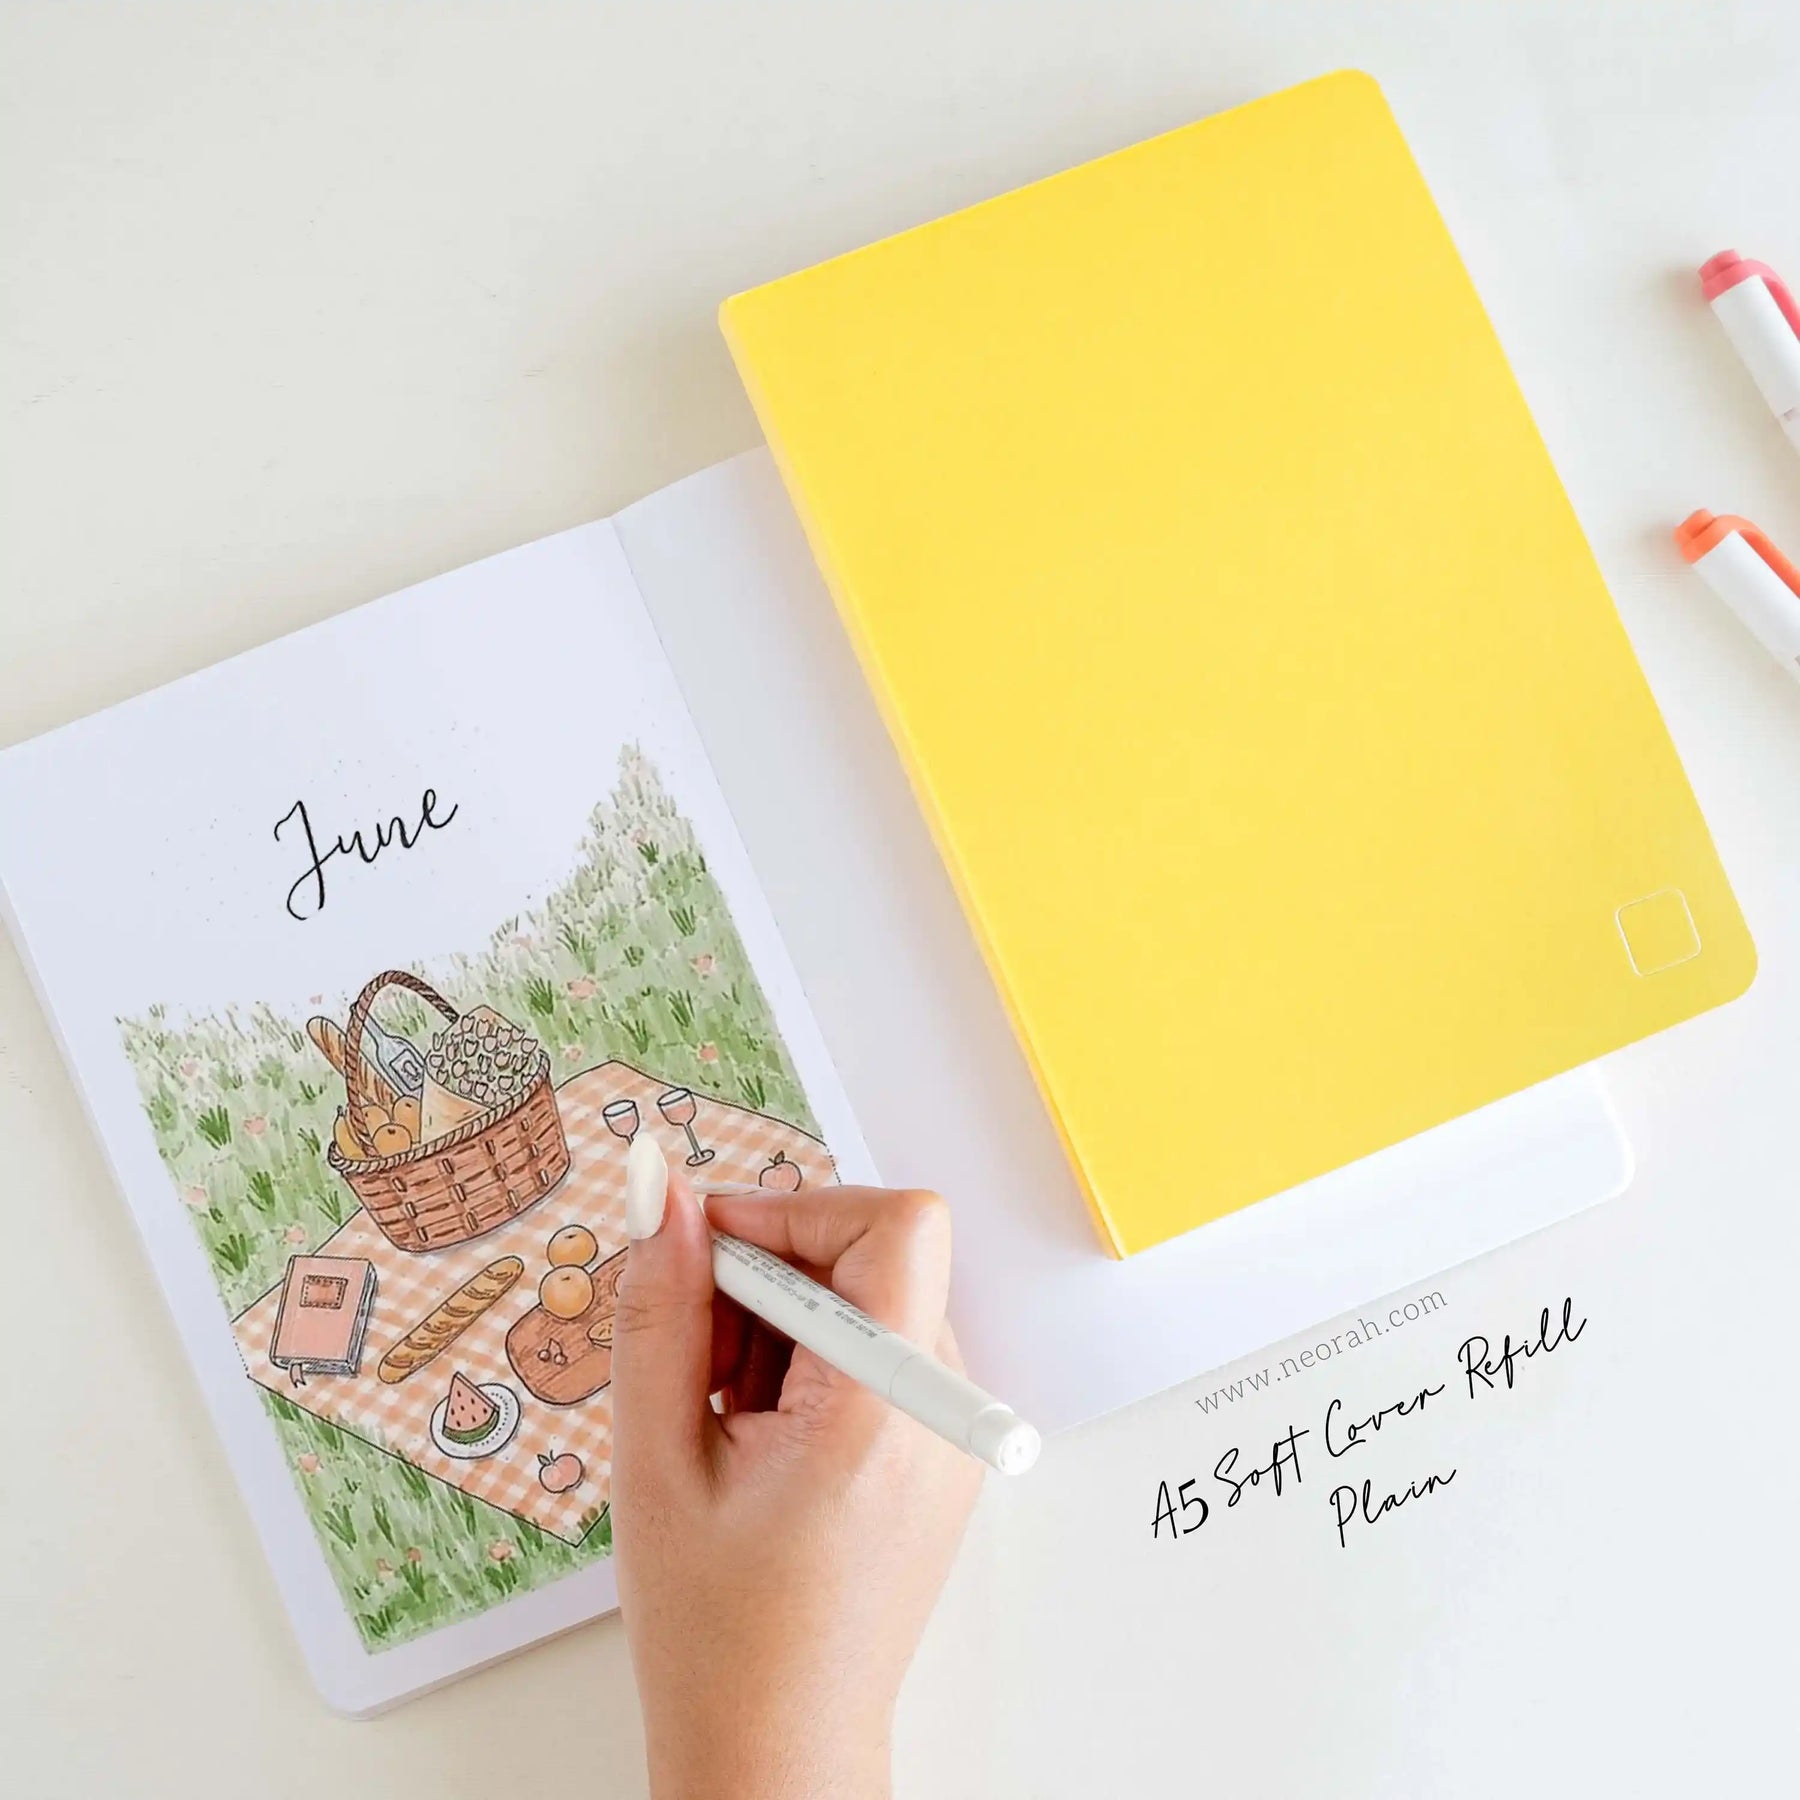 June
www.neorah.com
A5 Soft Cover Refill
Plain